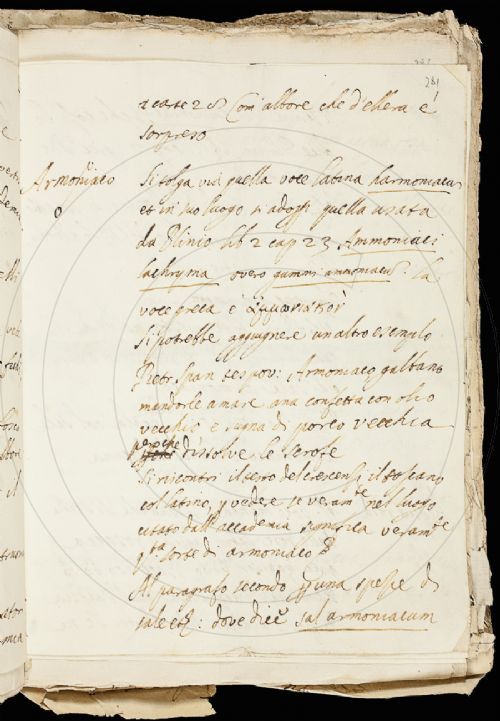 281
2 carte 28 Com' albore che d'ellera è
sorpreso
Armoniaco
Si tolga via quella voce latina harmoniacus
et in suo luogo si adopi quella usata
da Plinio lib 2 cap 23 Ammoniaci
lachryma overo gummi ammoniacũ: la
voce greca è
Si potrebbe aggiugnere un altro esempio
Pietr Span tes pov: Armoniaco galbano
mandorle amare ana confetta con olio
vecchio e sugna di porco vecchia
perche dissolve le scrofe
Si riscontri il testo del Crescenzi il toscano
col latino, p vedere se veram.te nel luogo
citato dall'accademia significa veram.te
q.ta sorte di armoniaco
Al paragrafo secondo una spezie di
sale etc: dove dice sal armoniacum